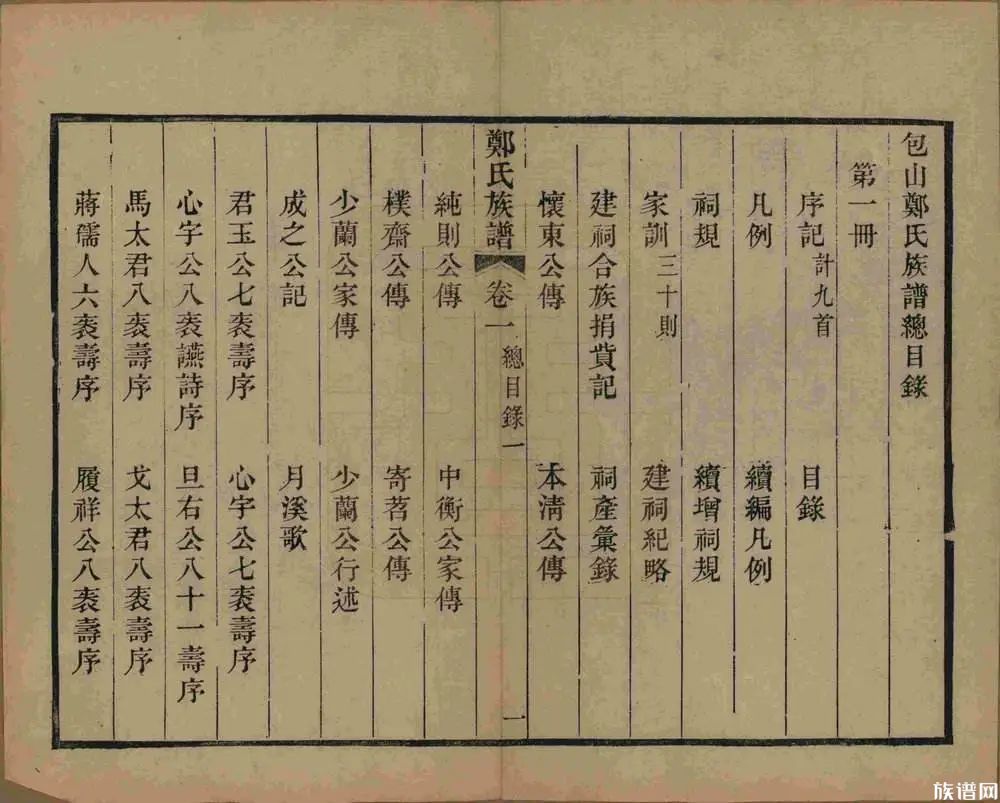 包山鄭氏族譜總目錄
第一冊
序記計九首 目錄
凡例 續編凡例
祠規 續增祠規
家訓三十則 建祠紀略
建祠合族捐貲記 祠產彙錄
懷東公傳 本淸公傳
鄭氏族譜 卷一 總目錄一 一
純則公傳 中衡公家傳
樸齋公傳 寄茗公傳
少蘭公家傳 少蘭公行述
成之公記 月溪歌
君玉公七袠壽序 心宇公七袠壽序
心字公八袠讌詩序 旦右公八十一壽序
馬太君八袠壽序 戈太君八袠壽序
蔣儒人六袠壽序 履祥公八袠壽序
族谱网